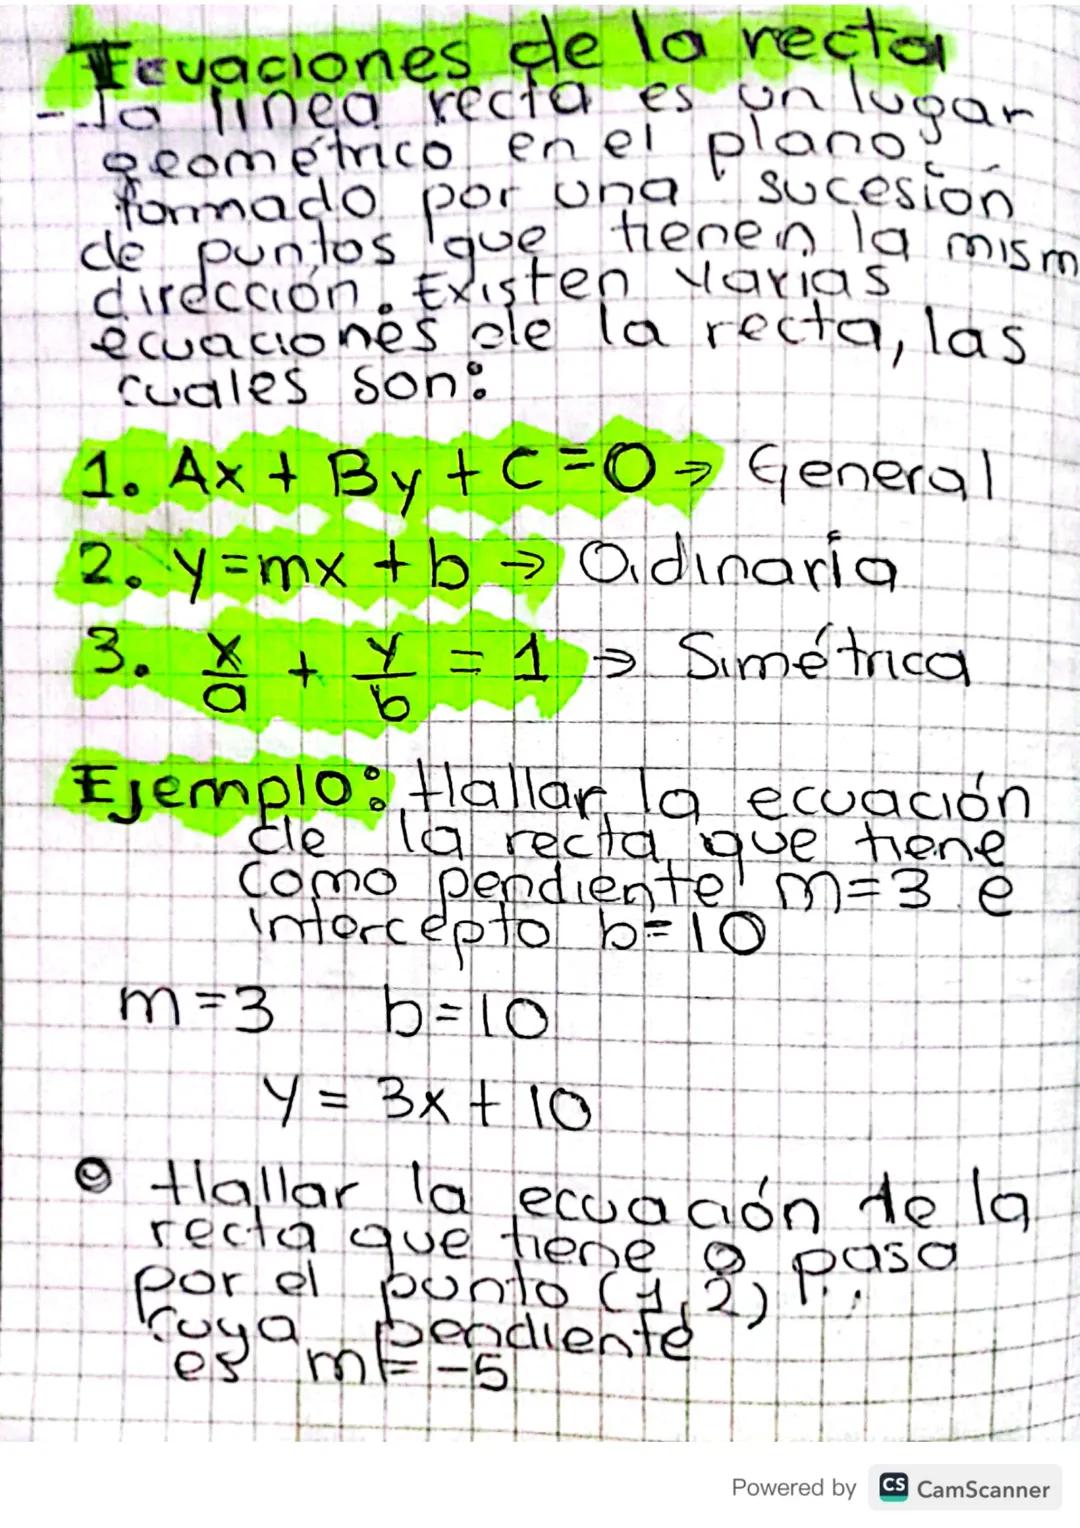 Ecuaciones de la recta
- La línea recta es un lugar
geométrico en el plano
formado por una sucesión
de puntos que tienen la mism
dirección. Existen varias
ecuaciones de la recta, las
cuales son:
1. Ax + By + C = 0 → General
2. y = mx + b → Ordinaria
3. x/a + y/b = 1 → Simétrica
Ejemplo: Hallar la ecuación
de la recta que tiene
como pendiente m=3 e
intercepto b=10
m=3 b=10
y = 3x + 10
• Hallar la ecuación de la
recta que tiene o pasa
por el punto (1,2)
cuya pendiente
es m=-5
Powered by CS CamScanner